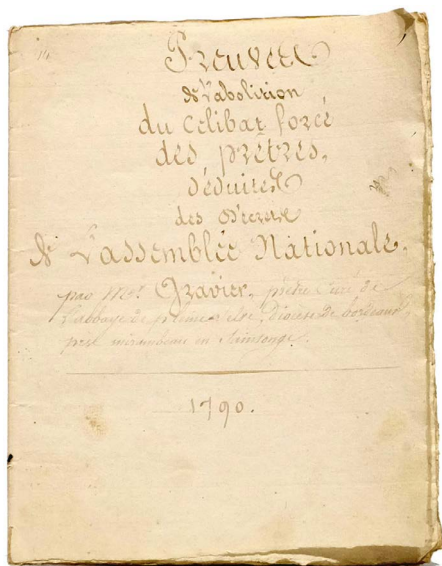 14
Preuves
de l'abolition
du célibat forcé
des prêtres,
déduites
des Décrets
de l'assemblée Nationale.
par Mr. Gravier, prêtre curé de
l'abbaye de diocese de bordeaux
près mirambeau en Saintonge.
1790.